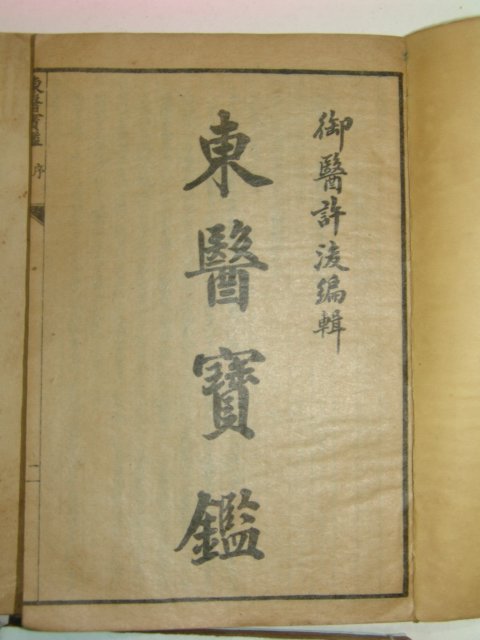 御醫許浚編輯
東醫寶鑑
東醫寶鑑 序
一